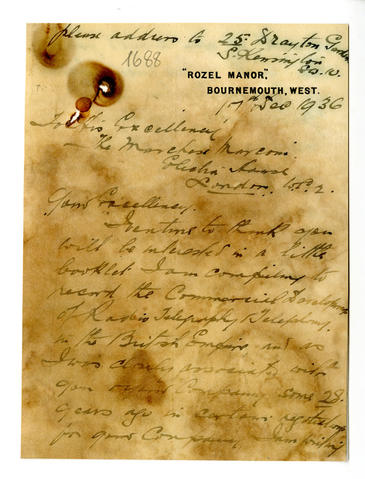 please address to 25 Drayton Gardens
S. Kensington
S.W.
1688
"ROZEL MANOR,"
BOURNEMOUTH, WEST.
17th Dec 1936
To His Excellency
The Marchese Marconi
Electra House
London. W.C.2.
Your Excellency.
I venture to think you
will be interested in a little
booklet I am compiling to
record the Commercial Development
of Radio Telegraphy & Telephony.
in the British Empire and as
I was closely associated with
your Company some 28
years ago in certain negotiations
for your Company I am